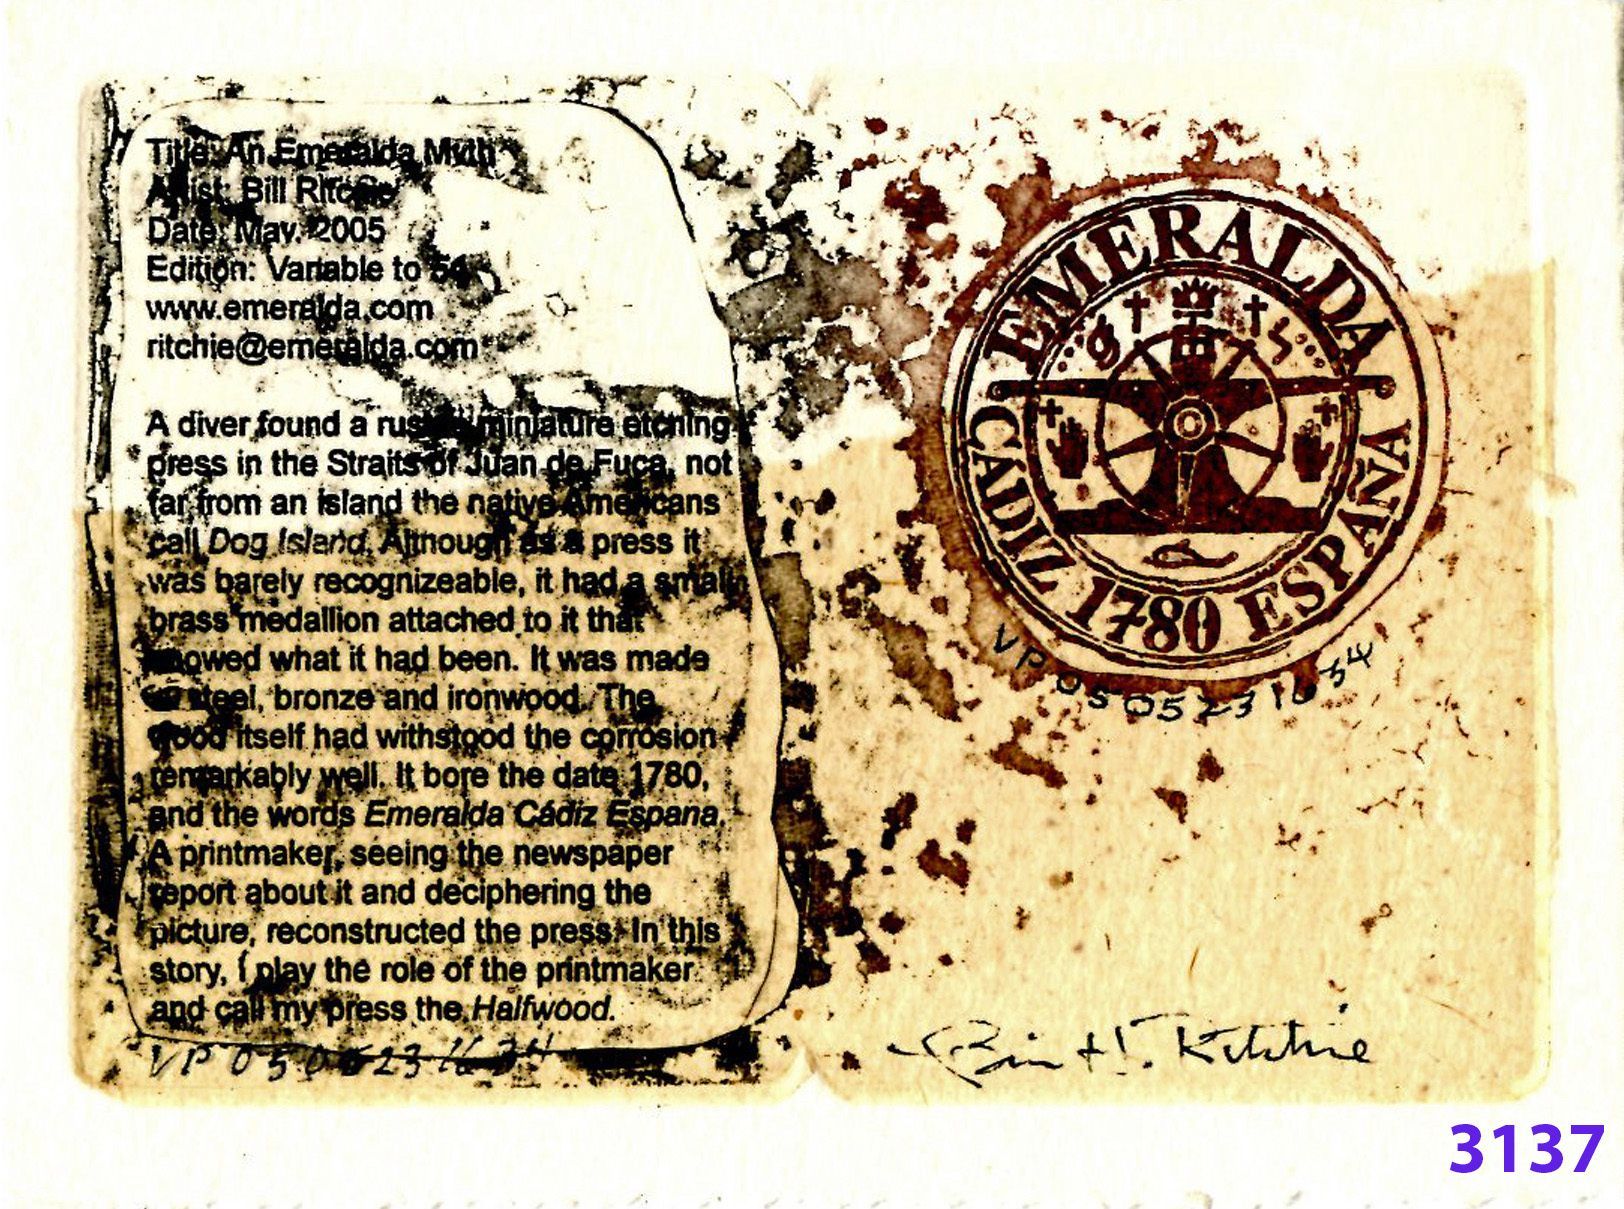 Title: An Emeralda Myth
Artist: Bill Ritchie
Date: May, 2005
Edition: Variable to
www.emeralda.com
ritchie@emeralda.com
A diver found a miniature etching
press in the Straits of Juan de Fuca, not
far from an island the native Americans
call Dog Island. Although as a press it
was barely recognizeable, it had a small
brass medallion attached to it that
showed what it had been. It was made
of steel, bronze and ironwood. The
wood itself had withstood the corrosion
remarkably well. It bore the date 1780,
and the words Emeralda Cádiz Espana.
A printmaker, seeing the newspaper
report about it and deciphering the
picture, reconstructed the press. In this
story, I play the role of the printmaker
and call my press the Halfwood.
VP 0505231634
EMERALDA
CÁDIZ 1780 ESPAÑA
VP 0505231634
Bill H. Ritchie
3137